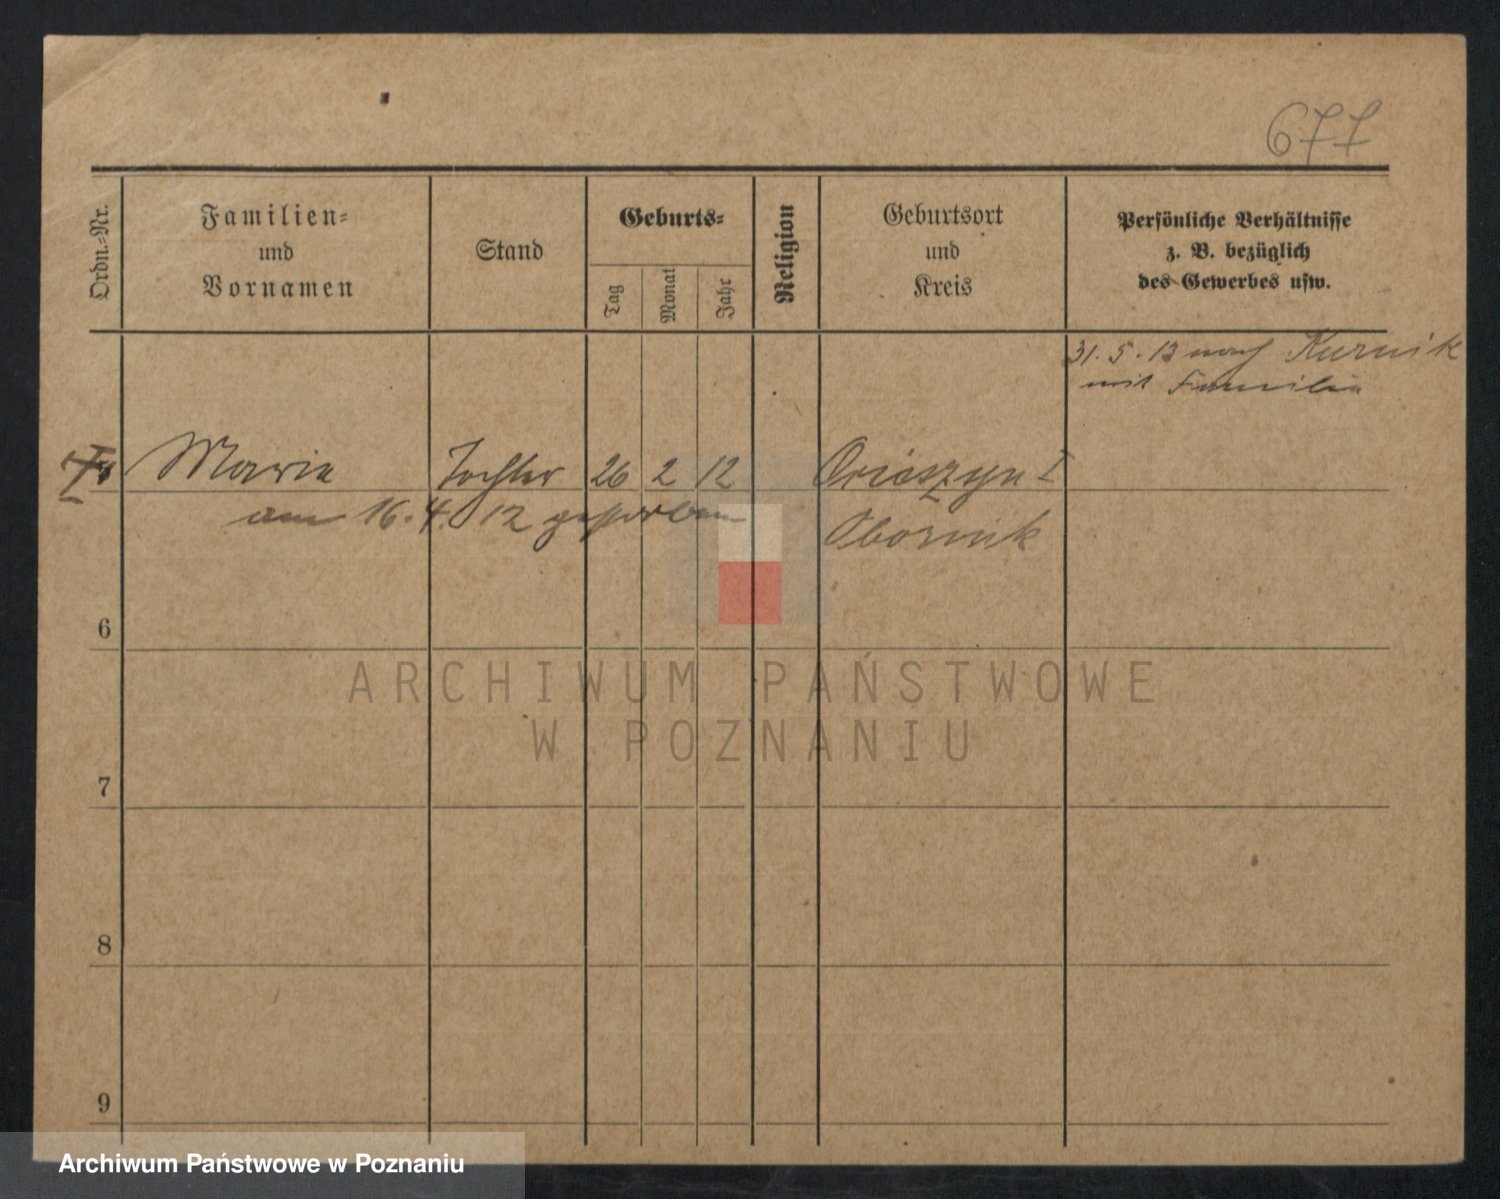 677
Ordn.-Nr.
Familien-
und
Vornamen
Stand
Geburts-
Tag
Monat
Jahr
Religion
Geburtsort
und
Kreis
Persönliche Verhältnisse
z. B. bezüglich
des Gewerbes usw.
31. 5. 13 nach Kurnik
mit Familie
Maria Tochter 26 2 12 I
am 16. 4. 12 gestorben Obornik
6
7
8
9
ARCHIWUM PAŃSTWOWE
W POZNANIU
Archiwum Państwowe w Poznaniu